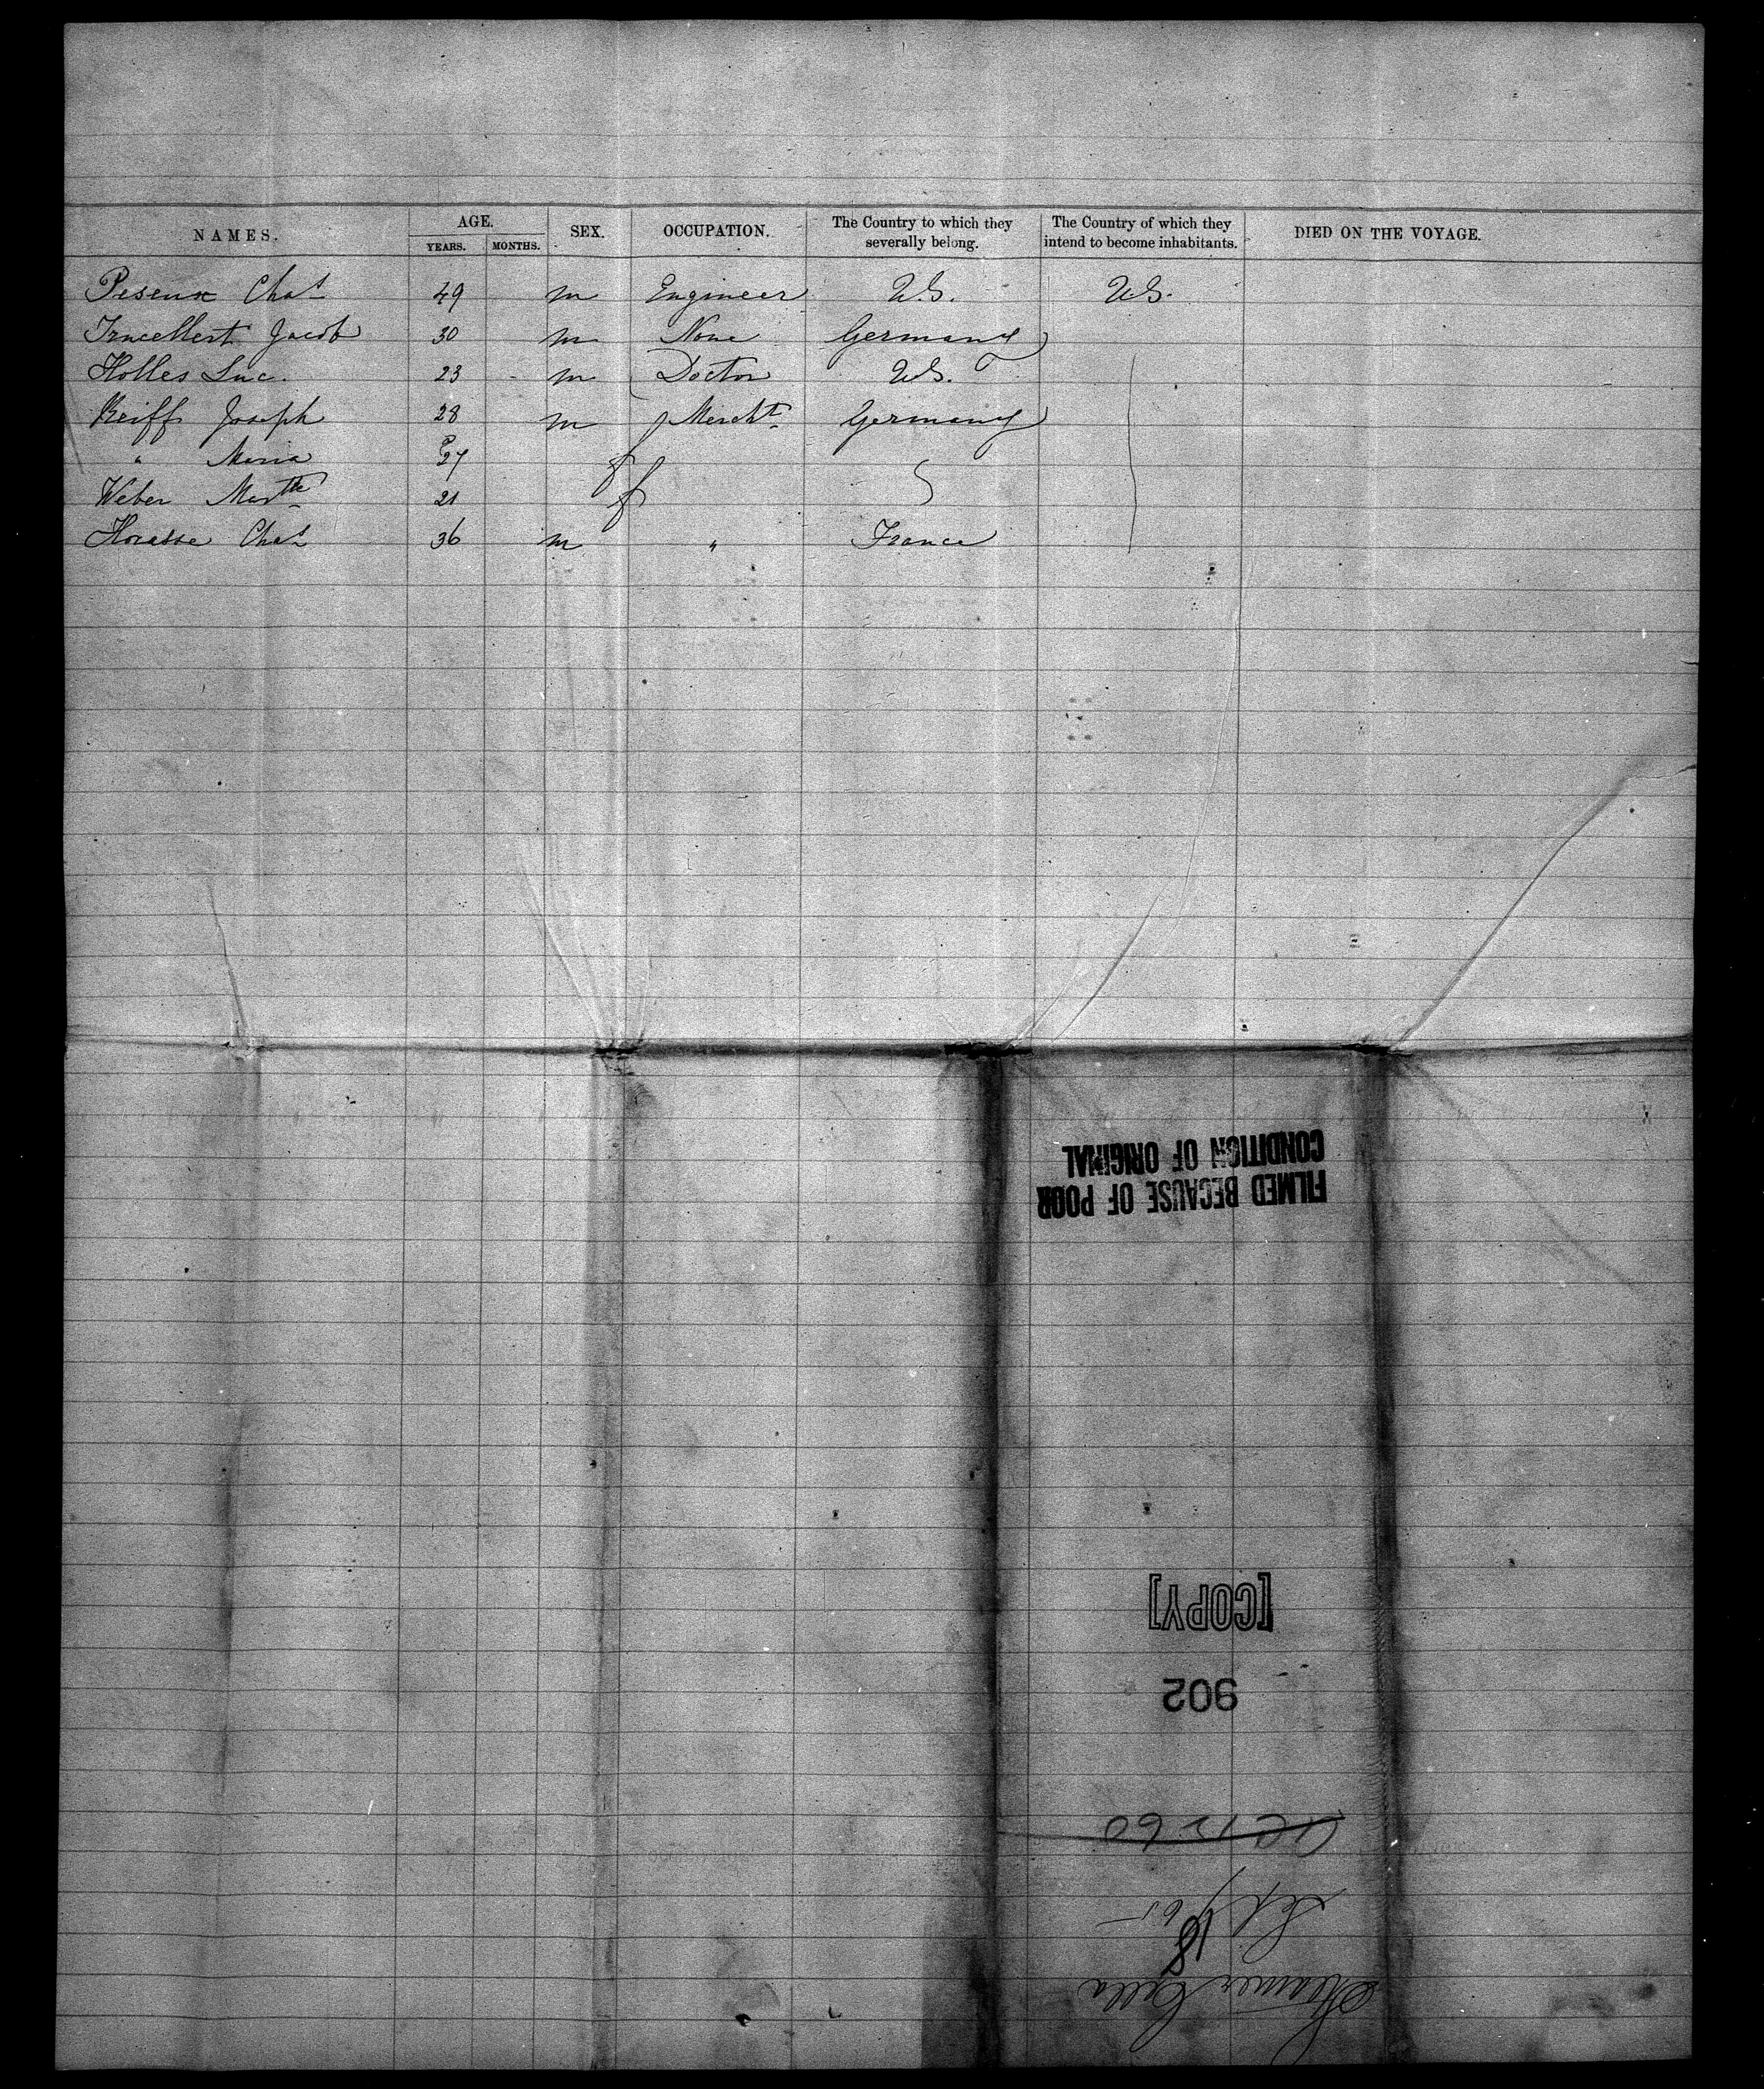 NAMES. AGE. YEARS. MONTHS. SEX. OCCUPATION. The Country to which they severally belong. The Country of which they intend to become inhabitants. DIED ON THE VOYAGE.
Peseux Chas 49 m Engineer U.S. U.S.
Jacob 30 m None Germany
Holles Luc. 23 m Doctor U.S.
Reiff Joseph 28 m Mercht Germany
" Maria 27 f
Weber 21 f
Horasse Chas 36 m " France
FILMED BECAUSE OF POOR
CONDITION OF ORIGINAL
[COPY]
902
Sept 65
18
Steamer Cella